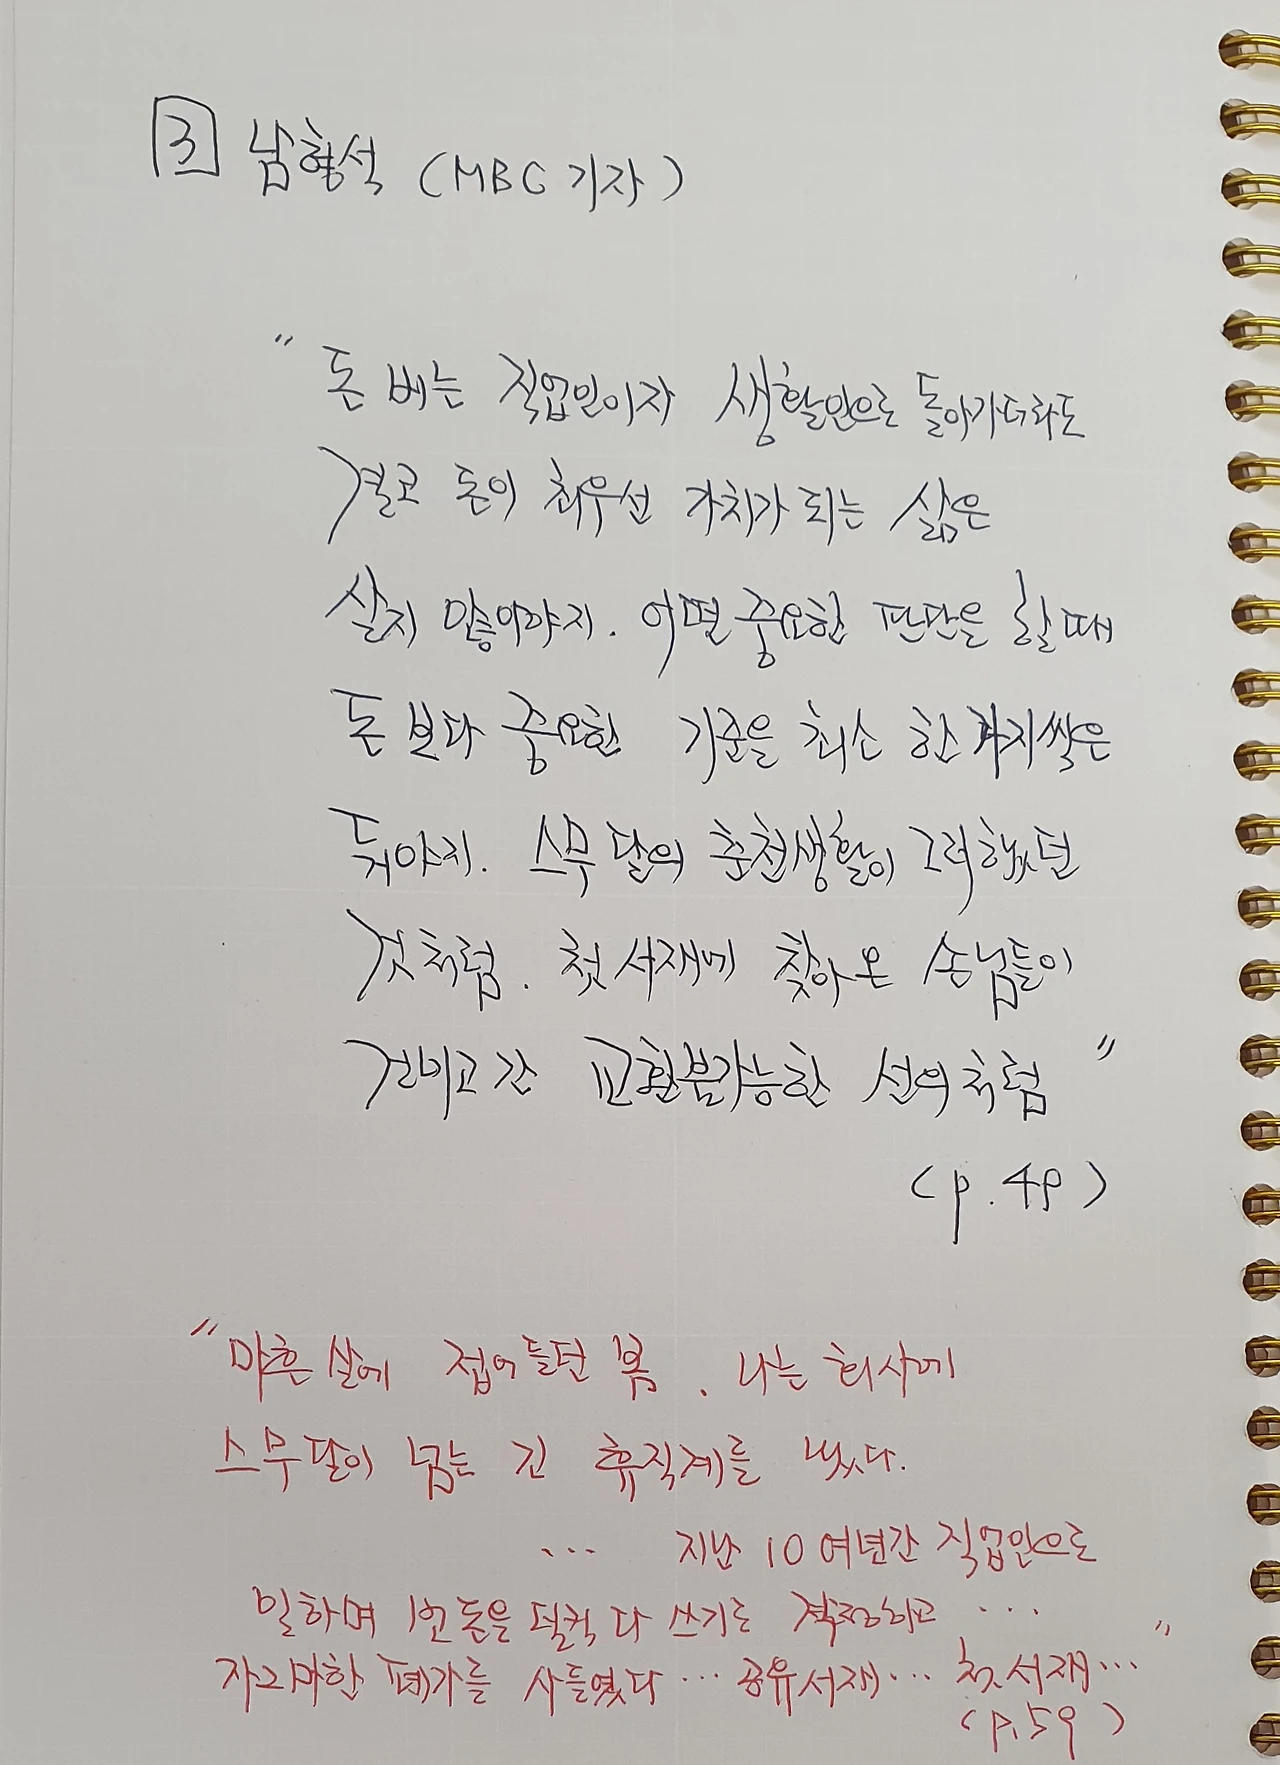 3 남형석 (MBC 기자)
" 돈 버는 직업인이자 생활인으로 돌아가더라도
결코 돈이 최우선 가치가 되는 삶은
살지 말아야지. 어떤 중요한 판단을 할 때
돈보다 중요한 기준을 최소 한가지씩은
둬야지. 스무 달의 춘천생활이 그러했던
것처럼. 첫 서재에 찾아온 손님들이
건네고 간 교환불가능한 선의처럼 "
(p.49)
" 마흔 살에 접어들던 봄. 나는 회사에
스무달이 넘는 긴 휴직계를 냈다.
... 지난 10여년간 직업인으로
일하며 번 돈을 덜컥 다 쓰기로 작정하고 ...
자그마한 폐가를 사들였다 ... 공유서재 ... 첫서재 ... "
(p.59)